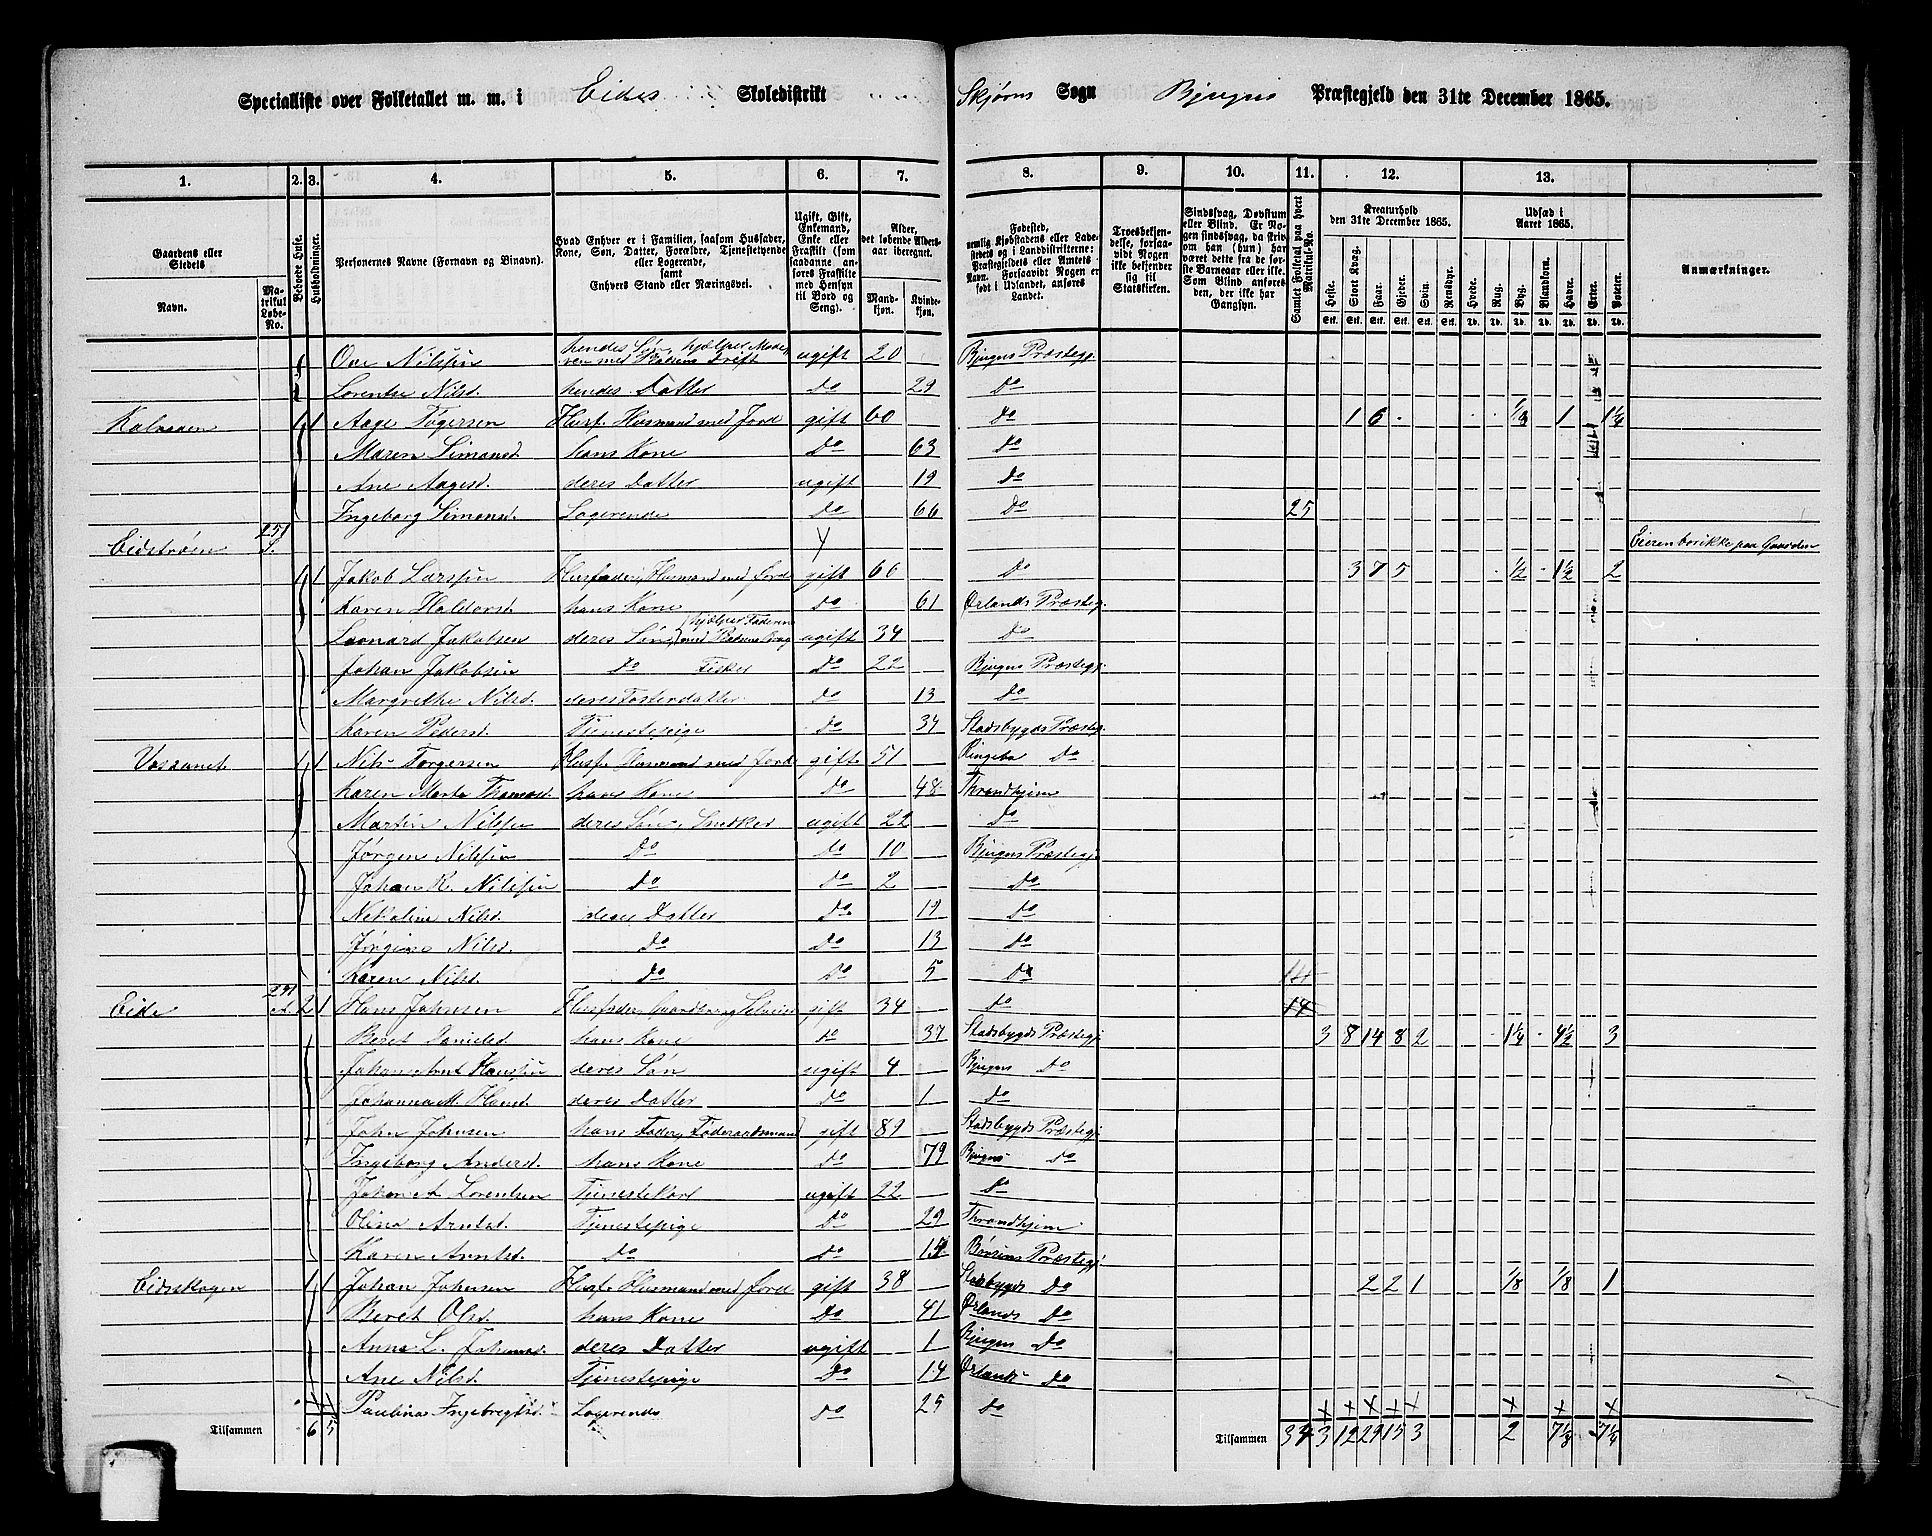 Specialliste over Folketallet m. m. i Eides Skoledistrikt Skjørns Sogn Bjugns Præstegjeld den 31te December 1865.
1. 2. 3. 4. 5. 6. 7. 8. 9. 10. 11. 12. 13.
Gaardens eller Stedets
Navn.
Matrikul Løbe-No.
Bebœde Huse.
Husholdninger.
Personernes Navne (Fornavn og Binavn).
Hvad Enhver er i Familien, saasom Husfader, Kone, Søn, Datter, Forældre, Tjenestetyende eller Logerende, samt Enhvers Stand eller Næringsvei.
Ugift, Gift, Enkemand, Enke eller Fraskilt (som saadanne anføres Fraskilte med Hensyn til Bord og Seng).
Alder, det løbende Aldersaar iberegnet.
Mandkjøn.
Kvindekjøn.
Fødested, nemlig Kjøbstadens eller Ladestedets og i Landdistrikterne: Præstegjeldets eller Amtets Navn. Forsaavidt Nogen er født i Udlandet, anføres Landet.
Troesbekjendelse, forsaavidt Nogen ikke bekjender sig til Statskirken.
Sindssvag, Døvstum eller Blind. Er Nogen sindssvag, da skrives om han (hun) har været dette fra de første Barneaar eller ikke. Som Blind anføres den, der ikke har Gangsyn.
Samlet Folketal paa hvert Matrikul-No.
Kreaturhold den 31te December 1865.
Heste. Stort Kvæg. Faar. Gjeder. Svin. Rensdyr.
Udsæd i Aaret 1865.
Hvede. Rug. Byg. Blandkorn. Havre. Erter. Poteter.
Anmærkninger.
Ove Nilssen hendes Søn, hjælper Moderen med Brugets Drift ugift 20 Bjugns Præstegj.
Lorentse Nilsd. hendes Datter Do 29 Do
1 1 Aage Togersen Husf. Husmand med Jord gift 60 Do 1 6 1/8 1 1¼
Maren Simonsd. hans Kone Do 63 Do
Ane Aagesd. deres Datter ugift 19 Do
Ingeborg Simonsd. Logerende Do 66 Do 25
Eidstrøen 251 Eieren bor ikke paa Gaarden
1 1 Jakob Larssen Husfader, Husmand med Jord gift 60 Do 3 7 5 ½ 1½ 2
Karen Haldorsd. hans Kone Do 61 Ørlands Præstegj.
Leonard Jakobsen deres Søn, hjælper Faderen med ugift 34 Do
Johan Jakobsen Do Fisker Do 22 Bjugns Præstegj.
Margrethe Nilsd. deres Fosterdatter Do 13 Do
Karen Pedersd. Tjenestepige Do 37 Stadsbygds Præstegj.
1 1 Nils Torgersen Husf. Husmand med Jord gift 51 Ringebo Do
Karen Marta Thomasd. hans Kone Do 48 Throndhjem
Martin Nilssen deres Søn, Snedker ugift 22 Do
Jørgen Nilssen Do Do 10 Bjugns Præstegj.
Johan R. Nilssen Do Do 2 Do
Nikoline Nilsd. deres Datter Do 19 Do
Jørgine Nilsd. Do Do 13 Do
Karen Nilsd. Do Do 5 Do 14
Eide 2 1 Hans Johnsen Husfader, Gaardbruger, Selveier gift 34 Do 14
Beret Danielsd. hans Kone do 37 Stadsbygds Præstegj. 3 8 14 8 2 1¼ 4½ 3
Johan Arnt Hanssen deres Søn ugift 4 Bjugns Do
Johanna M. Hansd. deres Datter Do 1 Do
John Johnsen hans Fader, Føderaadsmand gift 89 Stadsbygds Præstegj.
Ingeborg Andersd. hans Kone Do 79 Bjugns Do
Johan A. Lorentsen Tjenestekarl ugift 22 Do
Olina Arntsd. Tjenestepige Do 29 Throndhjem
Karen Arntsd. Do Do Børsens Præstegj.
Eidsskogen 1 1 Johan Johnsen Husf. Husmand med Jord gift 38 Stadsbygds Do 2 2 1 1/8 1/8 1
Beret Olsd. hans Kone Do 41 Ørlands Do
Anna L. Johansd. deres Datter ugift 1 Bjugns Do
Ane Nilsd. Tjenestepige Do 14 Ørlands Do
Paulina Ingebregtsd. Logerende Do 25 Do
Tilsammen 6 5 Tilsammen 34 3 12 29 15 3 2 7¼